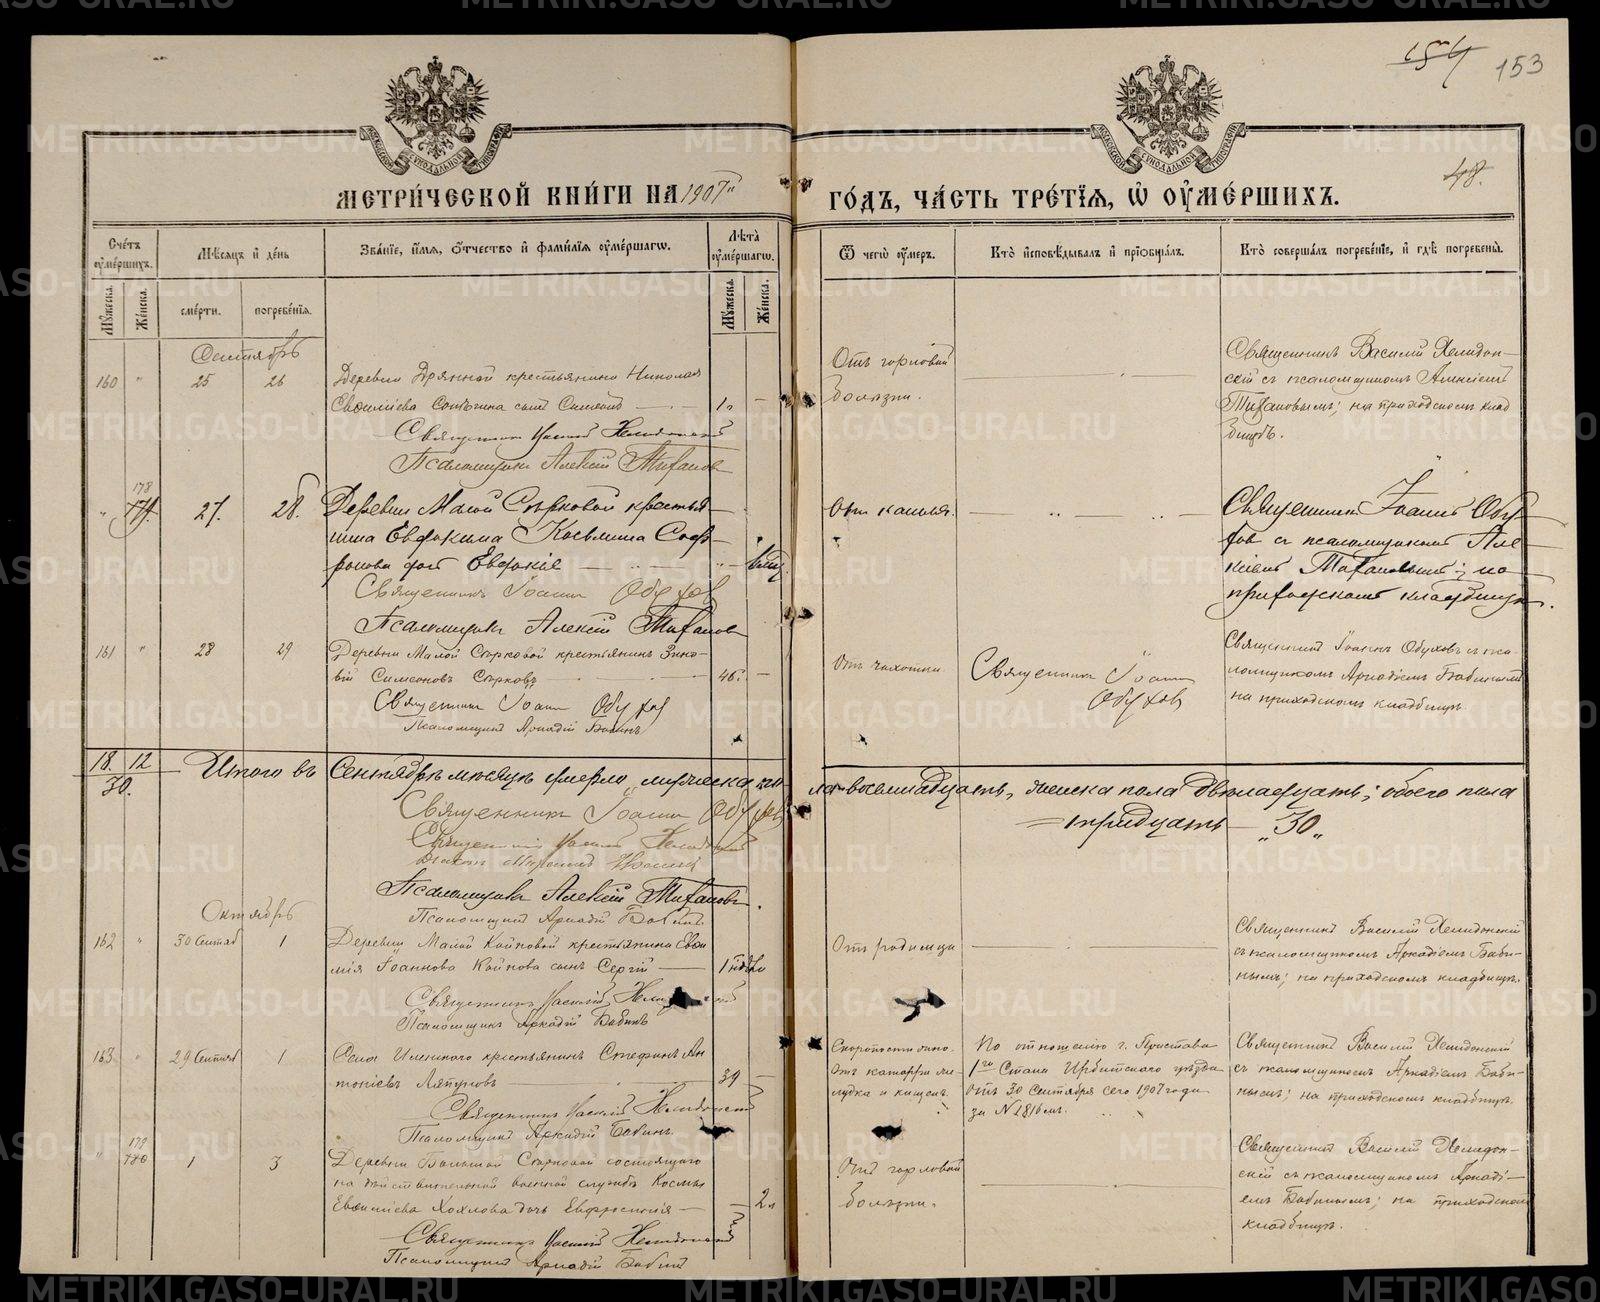 154 153
48.
МЕТРИ́ЧЕСКОЙ КНИ́ГИ НА 1907й ГО́ДЪ, ЧА́СТЬ ТРЕ́ТІЯ, Ѡ ОУ҆МЕ́РШИХЪ.
Сче́тъ оу҆ме́ршихъ.
Мѣ́сяцъ и҆ де́нь
Зва́нїе, и҆́мя, ѻ҆́тчество и҆ фами́лїя оу҆ме́ршагѡ.
Лѣ́та оу҆ме́ршагѡ.
Ѿ чегѡ̀ оу҆́меръ.
Кто̀ и҆сповѣ́дывалъ и҆ прїѡбща́лъ.
Кто̀ соверша́лъ погребе́нїе, и҆ гдѣ̀ погребены̀.
Му́жеска.
Же́нска.
сме́рти.
погребе́нїя.
Му́жеска.
Же́нска.
Сентябрь
160 " 25 26
Деревни Дрянной крестьянина Николая
Евѳиміева сынъ Симеонъ 1
Священникъ Василій Хелидонскій
Псаломщикъ Алексій Тихановъ
Отъ горловой
болѣзни.
Священникъ Василій Хелидон-
скій съ псаломщикомъ Алексіемъ
Тихановымъ; на приходскомъ клад
бищѣ.
" 178 27. 28.
Деревни Малой Сѣрковой крестья-
нина Евдокима Косьмина Соф-
ронова дочь Евдокія
Священникъ Іоаннъ Обуховъ
Псаломщикъ Алексій Тихановъ
Отъ кашля.
Священникъ Іоаннъ Обу-
ховъ съ псаломщикомъ Але
ксіемъ Тихановымъ; на
приходскомъ кладбищѣ.
161 " 28 29
Деревни Малой Сѣрковой крестьянинъ Зино-
вій Симеоновъ Сѣрковъ 46
Священникъ Іоаннъ Обуховъ
Псаломщикъ Аркадій Бабинъ
Отъ чахотки
Священникъ Іоаннъ
Обуховъ
Священникъ Іоаннъ Обуховъ съ пса-
ломщикомъ Аркадіемъ Бабинымъ
на приходскомъ кладбищѣ.
18. 12
30.
Итого въ Сентябрѣ мѣсяцѣ умерло мужеска по-
ла восемнадцать, женска пола двѣнадцать; обоего пола
= тридцать — „30„
Священникъ Іоаннъ Обуховъ
Священникъ Василій Хелидонскій
Псаломщикъ Алексій Тихановъ.
Псаломщикъ Аркадій Бабинъ.
Октябрь
162 " 30 Сентяб 1
Деревни Малой Койковой крестьянина Евѳи
мія Іоаннова Койкова сынъ Сергій 1 нед
Священникъ Василій Хелидонскій
Псаломщикъ Аркадій Бабинъ
Отъ родимца
Священникъ Василій Хелидонскій
съ псаломщикомъ Аркадіемъ Баби-
нымъ; на приходскомъ кладбищѣ.
163 " 29 Сентяб 1
Села крестьянинъ Стефанъ Ан
тоніевъ Ляпуновъ 39
Священникъ Василій Хелидонскій
Псаломщикъ Аркадій Бабинъ.
Скоропостижно.
Отъ катарра же-
лудка и кишекъ.
По отношенію г. Пристава
1го Стана Ирбитскаго уѣзда
отъ 30 сентября сего 1907 года
за N 1816мъ.
Священникъ Василій Хелидонскій
съ псаломщикомъ Аркадіемъ Баби-
нымъ; на приходскомъ кладбищѣ.
" 179 180 1 3
Деревни Большой Сѣрковой состоящаго
на дѣйствительной военной службѣ Космы
Евѳиміева Хохлова дочь Евфросинія 2
Священникъ Василій Хелидонскій
Псаломщикъ Аркадій Бабинъ
Отъ горловой
болѣзни.
Священникъ Василій Хелидон-
скій съ псаломщикомъ Аркаді-
емъ Бабинымъ; на приходскомъ
кладбищѣ.
METRIKI.GASO-URAL.RU